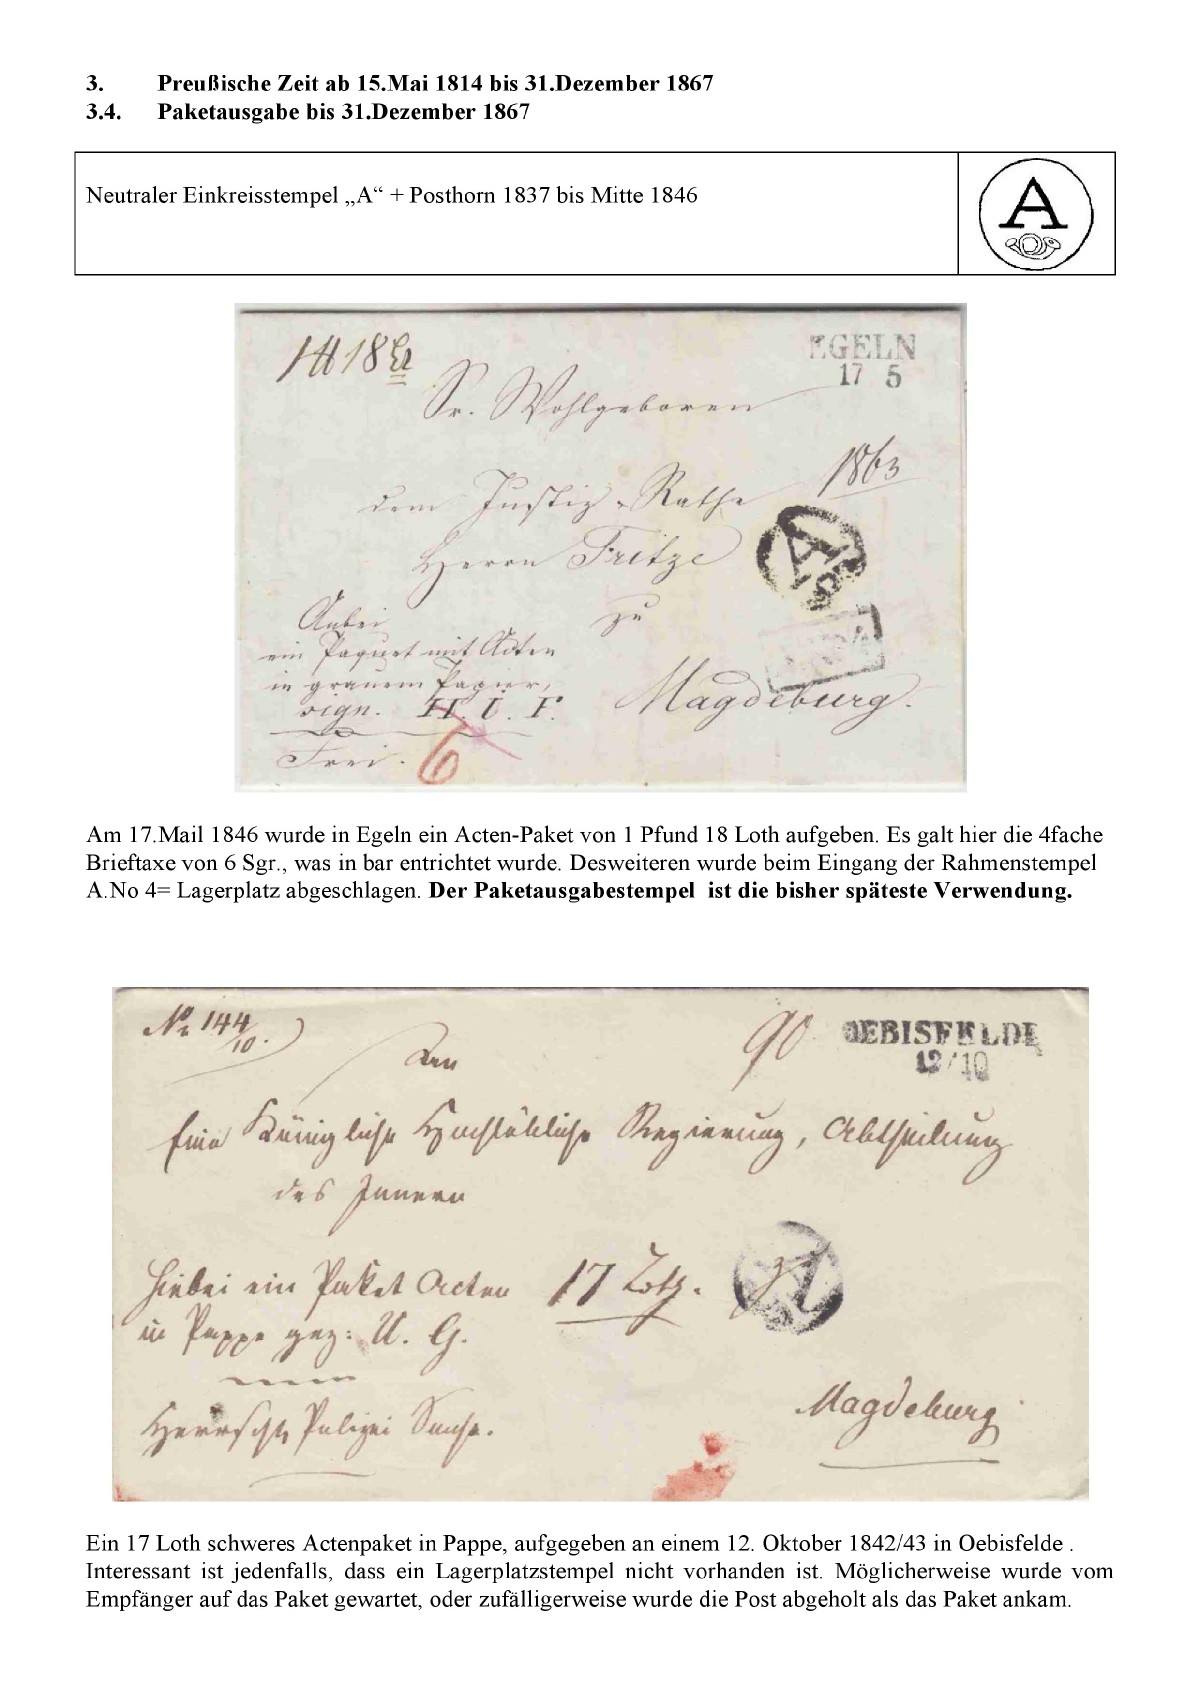 3. Preußische Zeit ab 15.Mai 1814 bis 31.Dezember 1867
3.4. Paketausgabe bis 31.Dezember 1867
Neutraler Einkreisstempel „A“ + Posthorn 1837 bis Mitte 1846
A
EGELN
17 5
Sr. Wohlgeboren
1863
dem Justiz-Rathe
A
Herrn Fritze
Anbei
zu
ein Paquet mit Acten
in grauem Papier,
Magdeburg.
sign. H. I. F.
Frei.
6
Am 17.Mail 1846 wurde in Egeln ein Acten-Paket von 1 Pfund 18 Loth aufgeben. Es galt hier die 4fache
Brieftaxe von 6 Sgr., was in bar entrichtet wurde. Desweiteren wurde beim Eingang der Rahmenstempel
A.No 4= Lagerplatz abgeschlagen. Der Paketausgabestempel  ist die bisher späteste Verwendung.
No 144/10.
90
OEBISFELDE
12/10
Eine Königliche Hochlöbliche Regierung, Abtheilung
des Innern
Hiebei ein Paket Acten
17 Loth.
A
in Pappe gez: U. G.
Magdeburg
Herrschtl Polizei Sache.
Ein 17 Loth schweres Actenpaket in Pappe, aufgegeben an einem 12. Oktober 1842/43 in Oebisfelde .
Interessant ist jedenfalls, dass ein Lagerplatzstempel nicht vorhanden ist. Möglicherweise wurde vom
Empfänger auf das Paket gewartet, oder zufälligerweise wurde die Post abgeholt als das Paket ankam.